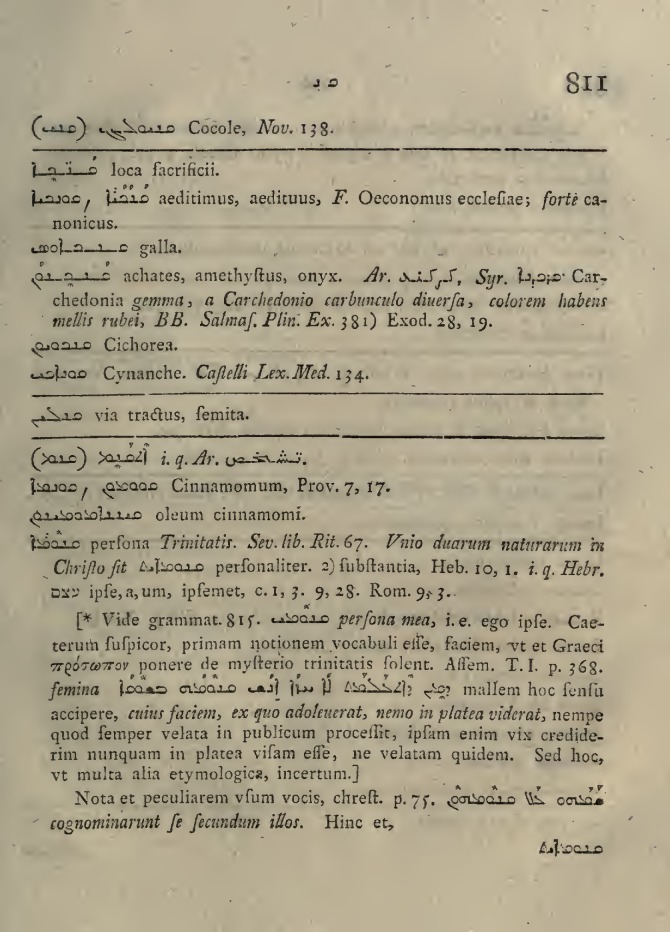 811
Cocole, Nov. 138.
loca sacrificii.
aeditimus, aedituus, F. Oeconomus ecclesiae; fortè ca-
nonicus.
galla.
achates, amethystus, onyx. Ar. Syr. Car-
chedonia gemma, a Carchedonio carbunculo diuersa, colorem habens
mellis rubei, BB. Salmas. Plin. Ex. 381) Exod. 28, 19.
Cichorea.
Cynanche. Castelli Lex. Med. 134.
via tractus, semita.
i. q. Ar.
Cinnamomum, Prov. 7, 17.
oleum cinnamomi.
ܩܢܘܡܐ persona Trinitatis. Sev. lib. Rit. 67. Vnio duarum naturarum in
Christo fit ܩܢܘܡܐܝܬ personaliter. 2) substantia, Heb. 10, 1. i. q. Hebr.
עצם ipse, a, um, ipsemet, c. 1, 3. 9, 28. Rom. 9, 3.
[* Vide grammat. 815. ܩܢܘܡܝ persona mea, i. e. ego ipse. Cae-
terum suspicor, primam notionem vocabuli esse, faciem, vt et Graeci
πρόσωπον ponere de mysterio trinitatis solent. Assem. T. I. p. 368.
femina mallem hoc sensu
accipere, cuius faciem, ex quo adoleuerat, nemo in platea viderat, nempe
quod semper velata in publicum processit, ipsam enim vix credide-
rim nunquam in platea visam esse, ne velatam quidem. Sed hoc,
vt multa alia etymologica, incertum.]
Nota et peculiarem vsum vocis, chrest. p. 75.
cognominarunt se secundum illos. Hinc et,
ܩܢܘܡܐܝܬ